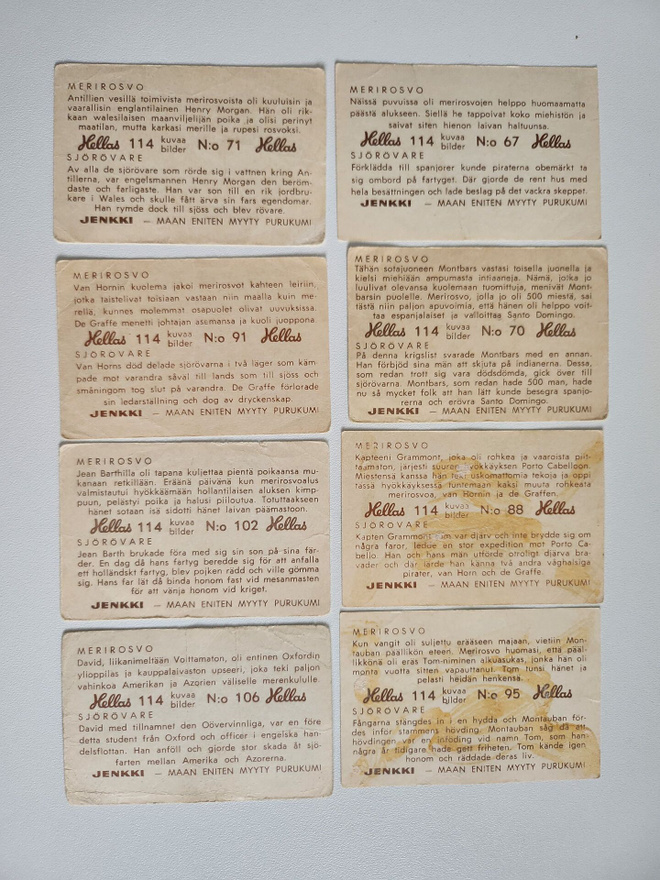 MERIROSVO
Antillien vesillä toimivista merirosvoista oli kuuluisin ja
vaarallisin englantilainen Henry Morgan. Hän oli rik-
kaan walesilaisen maanviljelijän poika ja olisi perinyt
maatilan, mutta karkasi merille ja rupesi rosvoksi.
Hellas 114 kuvaa bilder N:o 71 Hellas
SJÖRÖVARE
Av alla de sjörövare som rörde sig i vattnen kring An-
tillerna, var engelsmannen Henry Morgan den beröm-
daste och farligaste. Han var son till en rik jordbru-
kare i Wales och skulle fått ärva sin fars egendomar.
Han rymde dock till sjöss och blev rövare.
JENKKI – MAAN ENITEN MYYTY PURUKUMI
MERIROSVO
Van Hornin kuolema jakoi merirosvot kahteen leiriin,
jotka taistelivat toisiaan vastaan niin maalla kuin me-
rellä, kunnes molemmat osapuolet olivat uuvuksissa.
De Graffe menetti johtajan asemansa ja kuoli juoppona.
Hellas 114 kuvaa bilder N:o 91 Hellas
SJÖRÖVARE
Van Horns död delade sjörövarna i två läger som käm-
pade mot varandra såväl till lands som till sjöss och
småningom tog slut på varandra. De Graffe förlorade
sin ledarställning och dog av dryckenskap.
JENKKI – MAAN ENITEN MYYTY PURUKUMI
MERIROSVO
Jean Barthilla oli tapana kuljettaa pientä poikaansa mu-
kanaan retkillään. Eräänä päivänä kun merirosvoalus
valmistautui hyökkäämään hollantilaisen aluksen kimp-
puun, pelästyi poika ja halusi piiloutua. Totuttaakseen
hänet sotaan isä sidotti hänet laivan päämastoon.
Hellas 114 kuvaa bilder N:o 102 Hellas
SJÖRÖVARE
Jean Barth brukade föra med sig sin son på sina fär-
der. En dag då hans fartyg beredde sig för att anfalla
ett holländskt fartyg, blev pojken rädd och ville gömma
sig. Hans far lät då binda honom fast vid mesanmasten
för att vänja honom vid kriget.
JENKKI – MAAN ENITEN MYYTY PURUKUMI
MERIROSVO
David, liikanimeltään Voittamaton, oli entinen Oxfordin
ylioppilas ja kauppalaivaston upseeri, joka teki paljon
vahinkoa Amerikan ja Azorien väliselle merenkululle.
Hellas 114 kuvaa bilder N:o 106 Hellas
SJÖRÖVARE
David med tillnamnet den Oövervinnliga, var en före
detta student från Oxford och officer i engelska han-
delsflottan. Han anföll och gjorde stor skada åt sjö-
farten mellan Amerika och Azorerna.
JENKKI – MAAN ENITEN MYYTY PURUKUMI
MERIROSVO
Näissä puvuissa oli merirosvojen helppo huomaamatta
päästä alukseen. Siellä he tappoivat koko miehistön ja
saivat siten hienon laivan haltuunsa.
Hellas 114 kuvaa bilder N:o 67 Hellas
SJÖRÖVARE
Förklädda till spanjorer kunde piraterna obemärkt ta
sig ombord på fartyget. Där gjorde de rent hus med
hela besättningen och lade beslag på det vackra skeppet.
JENKKI – MAAN ENITEN MYYTY PURUKUMI
MERIROSVO
Tähän sotajuoneen Montbars vastasi toisella juonella ja
kielsi miehiään ampumasta intiaaneja. Nämä, jotka jo
luulivat olevansa kuolemaan tuomittuja, menivät Mont-
barsin puolelle. Merirosvo, jolla jo oli 500 miestä, sai
tästä niin paljon apuvoimia, että hänen oli helppo voit-
taa espanjalaiset ja valloittaa Santo Domingo.
Hellas 114 kuvaa bilder N:o 70 Hellas
SJÖRÖVARE
På denna krigslist svarade Montbars med en annan.
Han förbjöd sina män att skjuta på indianerna. Dessa,
som redan trott sig vara dödsdömda, gick över till
sjörövarna. Montbars, som redan hade 500 man, hade
nu så mycket folk att han lätt kunde besegra spanjo-
rerna och erövra Santo Domingo.
JENKKI – MAAN ENITEN MYYTY PURUKUMI
MERIROSVO
Kapteeni Grammont, joka oli rohkea ja vaaroista piit-
taamaton, järjesti suuren hyökkäyksen Porto Cabelloon.
Miestensä kanssa hän teki uskomattomia tekoja ja oppi
tässä hyökkäyksessä tuntemaan kaksi muuta rohkeata
merirosvoa, van Hornin ja de Graffen.
Hellas 114 kuvaa bilder N:o 88 Hellas
SJÖRÖVARE
Kapten Grammont som var djärv och inte brydde sig om
några faror, ledde en stor expedition mot Porto Ca-
bello. Han och hans män utförde otroligt djärva bra-
vader och där lärde han känna två andra våghalsiga
pirater, van Horn och De Graffe.
JENKKI – MAAN ENITEN MYYTY PURUKUMI
MERIROSVO
Kun vangit oli suljettu erääseen majaan, vietiin Mon-
tauban päällikön eteen. Merirosvo huomasi, että pääl-
likkönä oli eras Tom-niminen aikuasukas, jonka hän oli
monta vuotta sitten vapauttanut. Tom tunsi hänet ja
pelasti heidän henkensä.
Hellas 114 kuvaa bilder N:o 95 Hellas
SJÖRÖVARE
Fångarna stängdes in i en hydda och Montauban för-
des inför stammens hövding. Montauban såg då att
hövdingen var en inföding vid namn Tom, som han
några år tidigare hade gett friheten. Tom kände igen
honom och räddade deras liv.
JENKKI – MAAN ENITEN MYYTY PURUKUMI